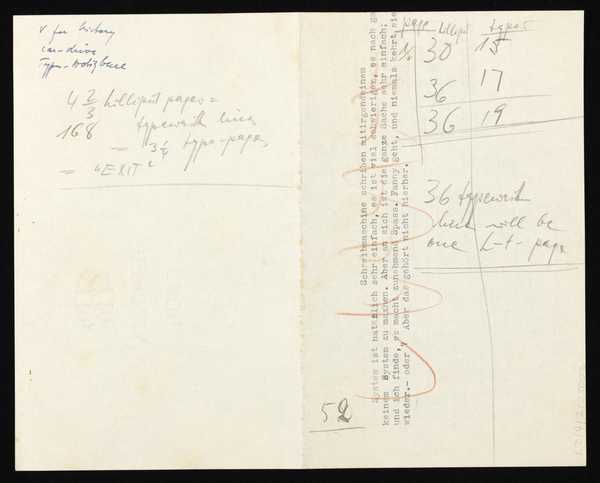 V for history
car-drive
Typen-Notizbuch
4 2/3 Lilliput pages =
168 typewrith lines
= 3 1/2 type-pages
= "EXIT"
page Lilliput types
½ 30 15
36 17
36 19
36 typewrith
lines will be
one L-t-page
Schreibmaschine schriben mitirgendeinem
System ist natürlich sehr einfach, es ist viel schwieriger, es nach ga
keinem System zu machen. Aber an sich ist die ganze Sache sehr einfach;
und ich finde, es macht zunehmend Spass. Fanny geht, und niemals kehrt sie
wieder.- oder, Aber das gehört nicht hierher.
52